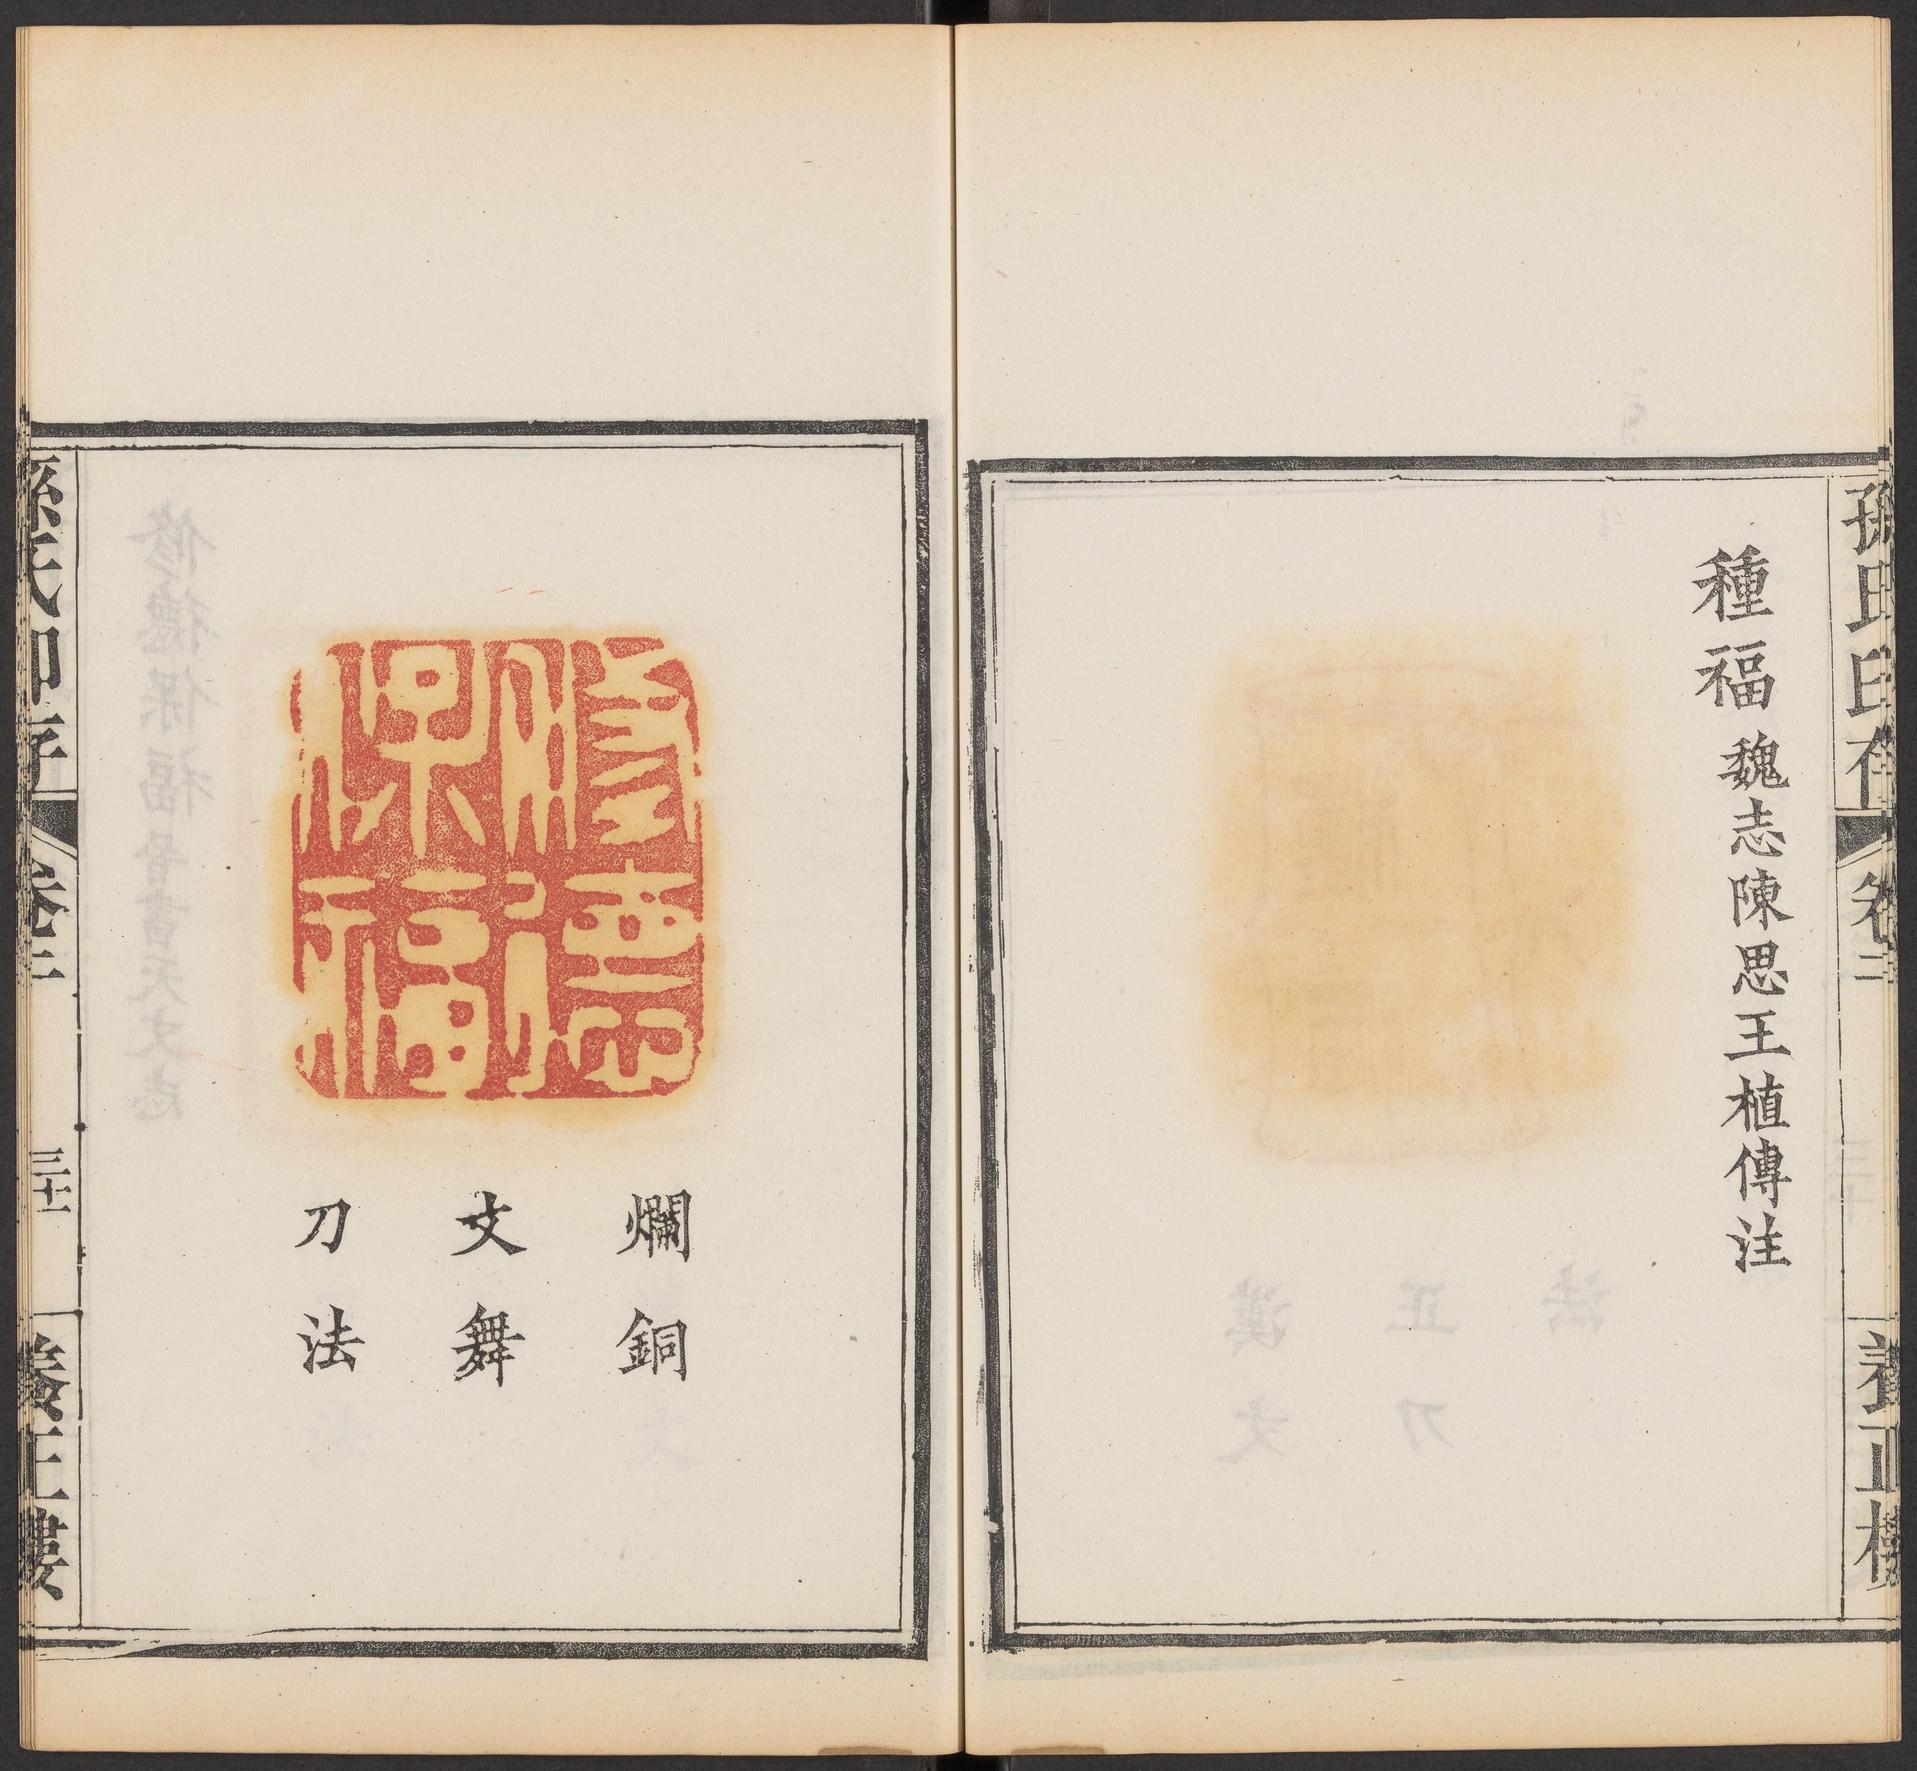 孫氏印存
卷二
養正樓
種福 魏志陳思王植傳注
修德保福
爛銅
文舞
刀法
孫氏印存
卷二
三十一
養正樓